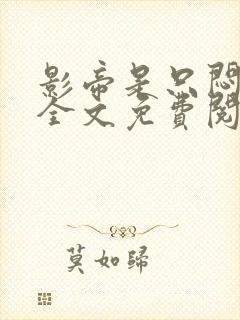 影帝是只悶
全文免費閱
莫如歸